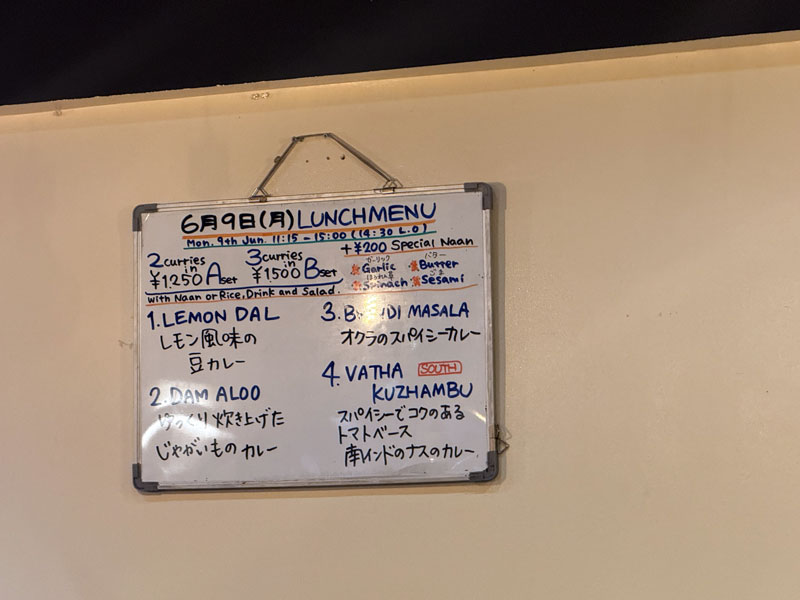 6月9日(月) LUNCH MENU
Mon. 9th Jun. 11:15 - 15:00 (14:30 L.O)
2 curries in ¥1,250 A set
3 curries in ¥1,500 B set
with Naan or Rice, Drink and Salad.
+¥200 Special Naan
ガーリック バター
Garlic Butter
ほうれん草 ごま
Spinach Sesami
1. LEMON DAL
レモン風味の
豆カレー
2. DAM ALOO
ゆっくり炊き上げた
じゃがいものカレー
3. MASALA
オクラのスパイシーカレー
4. VATHA SOUTH
KUZHAMBU
スパイシーでコクのある
トマトベース
南インドのナスのカレー